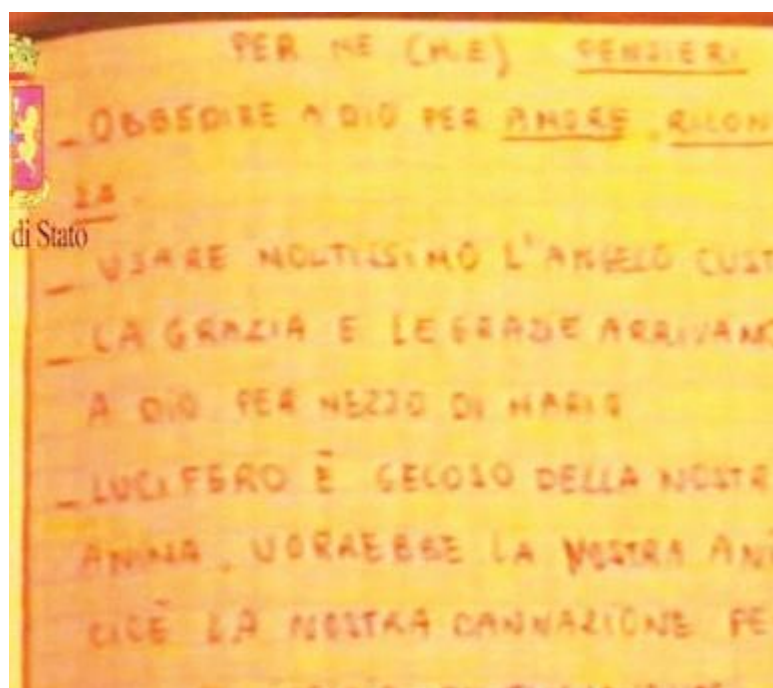 PER ME (M.E) PENSIERI
_ OBBEDIRE A DIO PER AMORE, RICON
ZA.
di Stato
_ USARE MOLTISSIMO L'ANGELO CUST
_ LA GRAZIA E LE GRAZIE ARRIVAN
A DIO PER MEZZO DI MARIA
_ LUCIFERO È GELOSO DELLA NOSTR
ANIMA, VORREBBE LA NOSTRA ANI
CIOÈ LA NOSTRA DANNAZIONE PE